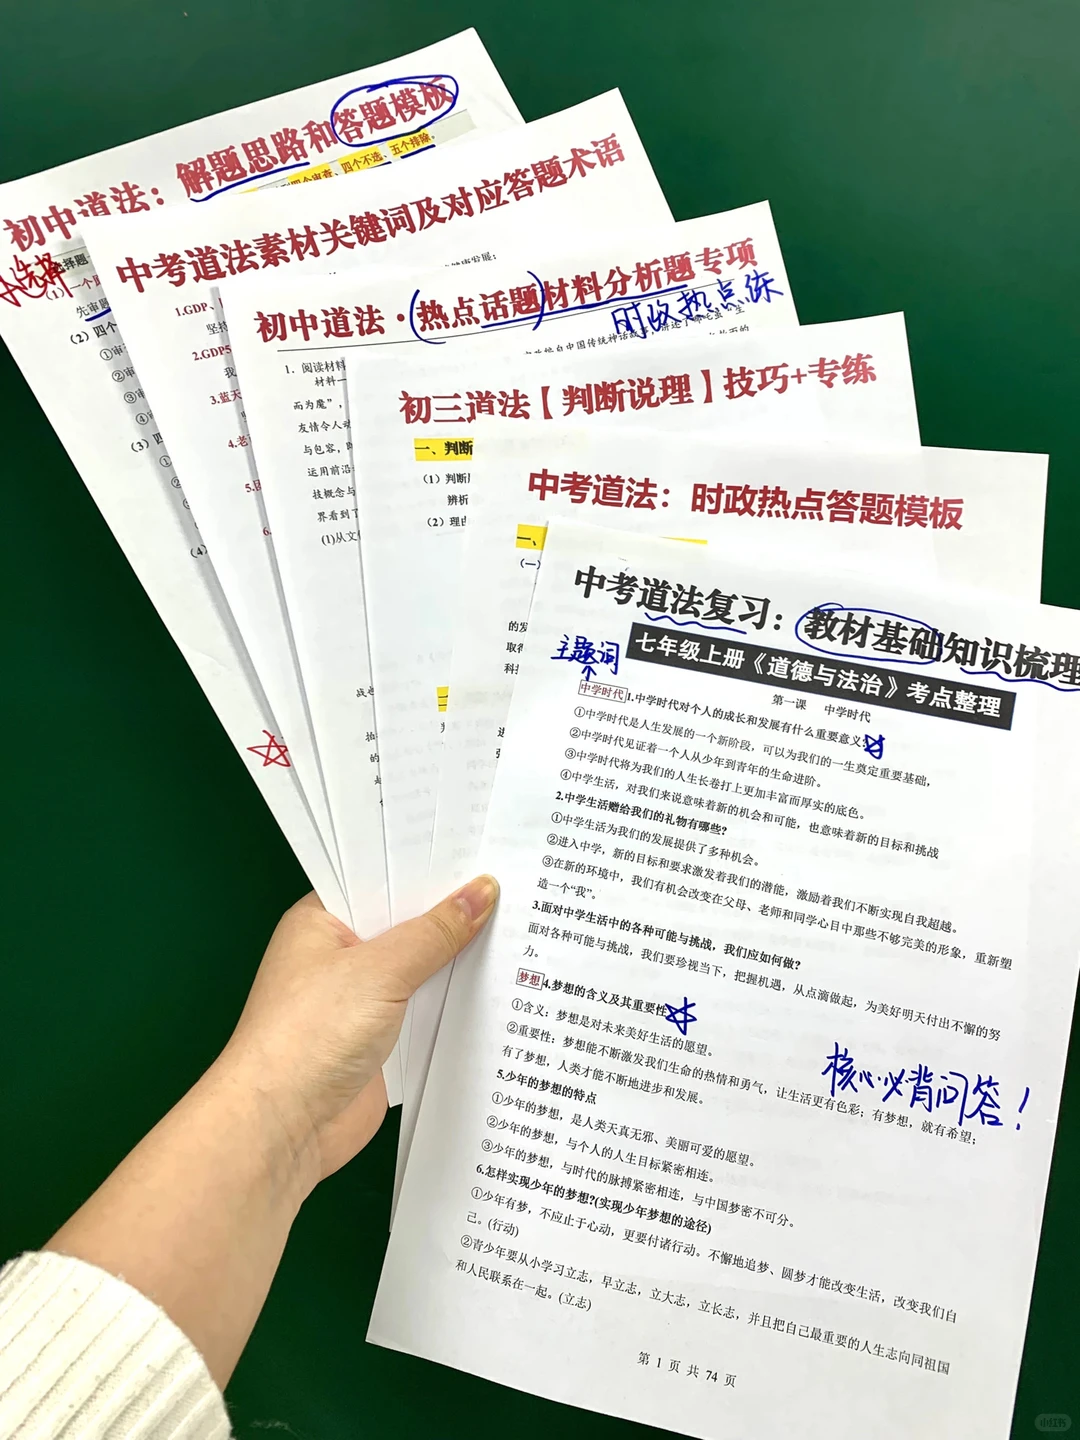 初中道法：解题思路和答题模板
四个审查、四个不选、五个排除。
选择
选择题
(1)一个
先审题
(2)四个
①审
②审
③审
④
(3)四
①
②
(4)
中考道法素材关键词及对应答题术语
健康发展；
1.GDP、
坚持
2.GDP5
我
3.蓝天
4.老
5.
6.
初中道法·(热点话题)材料分析题专项
时政热点练
1. 阅读材料
材料一
而为魔”，
友情令人动
与包容，
运用前沿
技概念与
界看到了
(1)从文化
初三道法【判断说理】技巧+专练
一、判断
（1）判断
辨析
（2）理由
中考道法：时政热点答题模板
一、
（一）
的发
取得
科技
中考道法复习：教材基础知识梳理
七年级上册《道德与法治》考点整理
主题词
第一课 中学时代
中学时代 1.中学时代对个人的成长和发展有什么重要意义?
①中学时代是人生发展的一个新阶段，可以为我们的一生奠定重要基础，
②中学时代见证着一个人从少年到青年的生命进阶。
③中学时代将为我们的人生长卷打上更加丰富而厚实的底色。
④中学生活，对我们来说意味着新的机会和可能，也意味着新的目标和挑战
2.中学生活赠给我们的礼物有哪些?
①中学生活为我们的发展提供了多种机会。
②进入中学，新的目标和要求激发着我们的潜能，激励着我们不断实现自我超越。
③在新的环境中，我们有机会改变在父母、老师和同学心目中那些不够完美的形象，重新塑
造一个“我”。
3.面对中学生活中的各种可能与挑战，我们应如何做?
面对各种可能与挑战，我们要珍视当下，把握机遇，从点滴做起，为美好明天付出不懈的努
力。
梦想 4.梦想的含义及其重要性
①含义：梦想是对未来美好生活的愿望。
②重要性：梦想能不断激发我们生命的热情和勇气，让生活更有色彩；有梦想，就有希望；
有了梦想，人类才能不断地进步和发展。
核心必背问答！
5.少年的梦想的特点
①少年的梦想，是人类天真无邪、美丽可爱的愿望。
②少年的梦想，与个人的人生目标紧密相连。
③少年的梦想，与时代的脉搏紧密相连，与中国梦密不可分。
6.怎样实现少年的梦想?(实现少年梦想的途径)
①少年有梦，不应止于心动，更要付诸行动。不懈地追梦、圆梦才能改变生活，改变我们自
己。(行动)
②青少年要从小学习立志，早立志，立大志，立长志，并且把自己最重要的人生志向同祖国
和人民联系在一起。(立志)
第 1 页 共 74 页
小红书